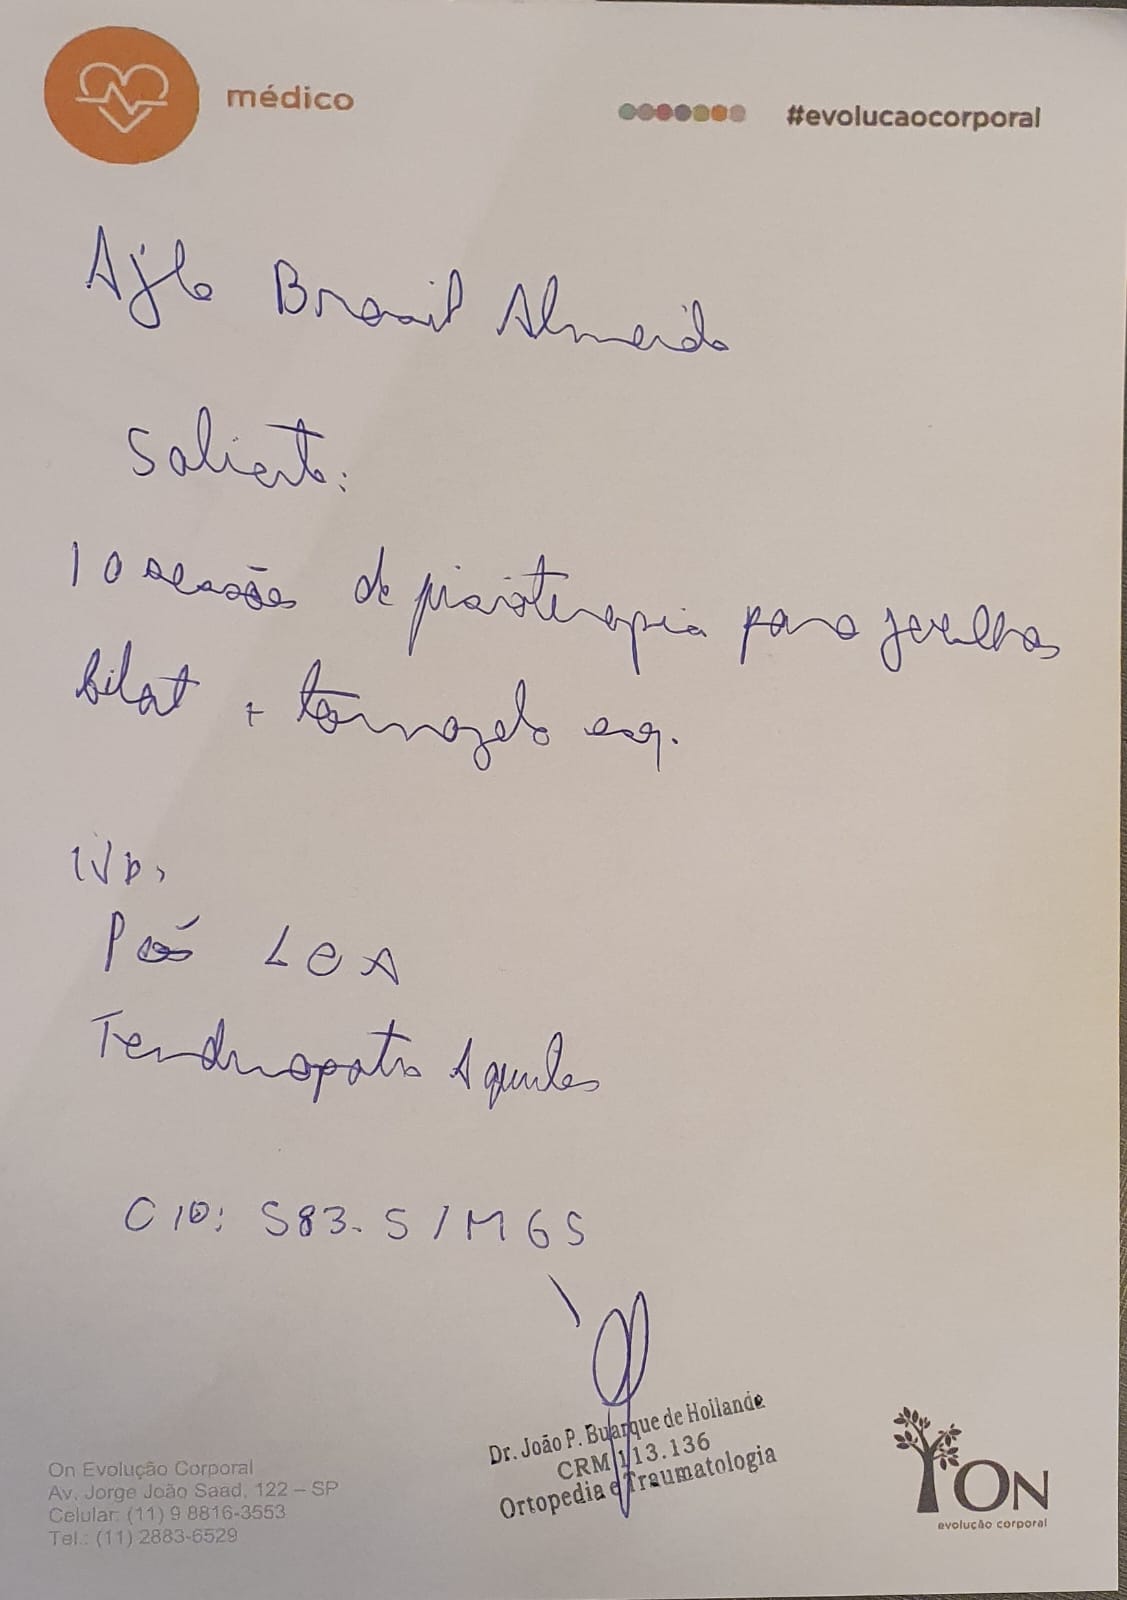 médico
#evolucaocorporal
Brasil Almeida
Solicito:
10 sessões de fisioterapia para joelhos
bilat + tornozelo esq.
Pós LCA
Tendinopatia Aquiles
CID: S83.5 / M65
Dr. João P. Buarque de Hollande
CRM 113.136
Ortopedia e Traumatologia
On Evolução Corporal
Av. Jorge João Saad, 122 – SP
Celular: (11) 9 8816-3553
Tel.: (11) 2883-6529
ON
evolução corporal